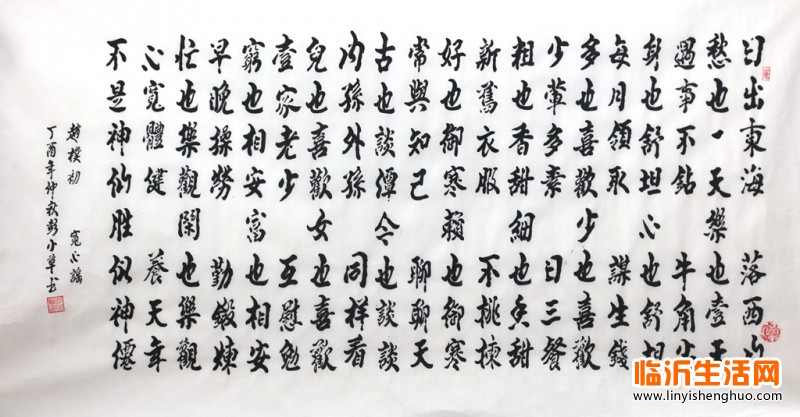 日出東海 落西山
愁也一天樂也壹天
遇事不鉆 牛角尖
身也舒坦心也舒坦
每月領取 謀生錢
多也喜歡少也喜歡
少葷多素 日三餐
粗也香甜細也香甜
新舊衣服 不挑揀
好也御寒賴也御寒
常與知己 聊聊天
古也談譚今也談談
内孫外孫 同樣看
兒也喜歡女也喜歡
壹家老少 互慰勉
窮也相安富也相安
早晚操勞 勤鍛煉
忙也樂觀閑也樂觀
心寬體健 養天年
不是神仙胜似神僊
趙樸初 寬心謡
丁酉年仲秋彭小草书
临沂生活网
www.linyishenghuo.com